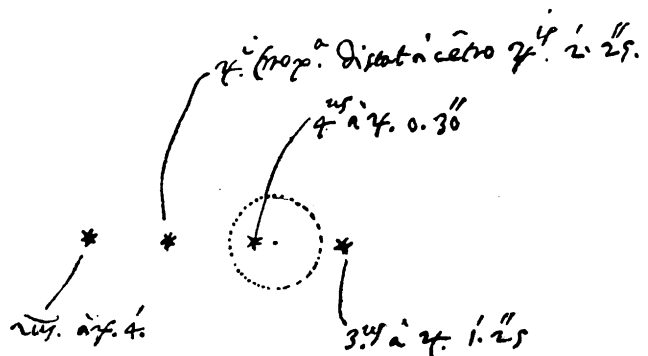 ♃.i prox.a Distat à cẽtro ♃is. 2′. 25″.
4us à ♃. 0. 30″
2us. à ♃. 4′.
3.us à ♃. 1′. 25″